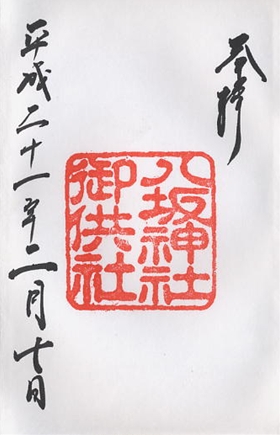 奉拝
八坂神社
御供社
平成二十一年二月七日